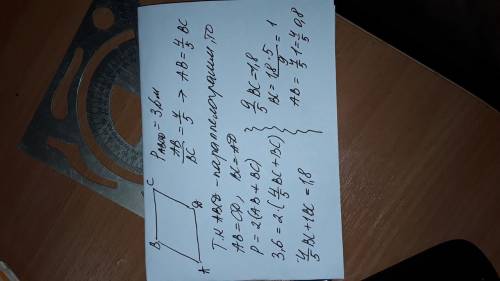 B C
A D
P ABCD = 3,6 м
AB/BC = 4/5 → AB = 4/5 BC
Т.к ABCD - параллелограмм, то
AB = CD, BC = AD
P = 2(AB + BC)
3,6 = 2·(4/5 BC + BC)
4/5 BC + 1BC = 1,8
9/5 BC = 1,8
BC = 1,8·5/9 = 1
AB = 4/5·1 = 4/5 0,8